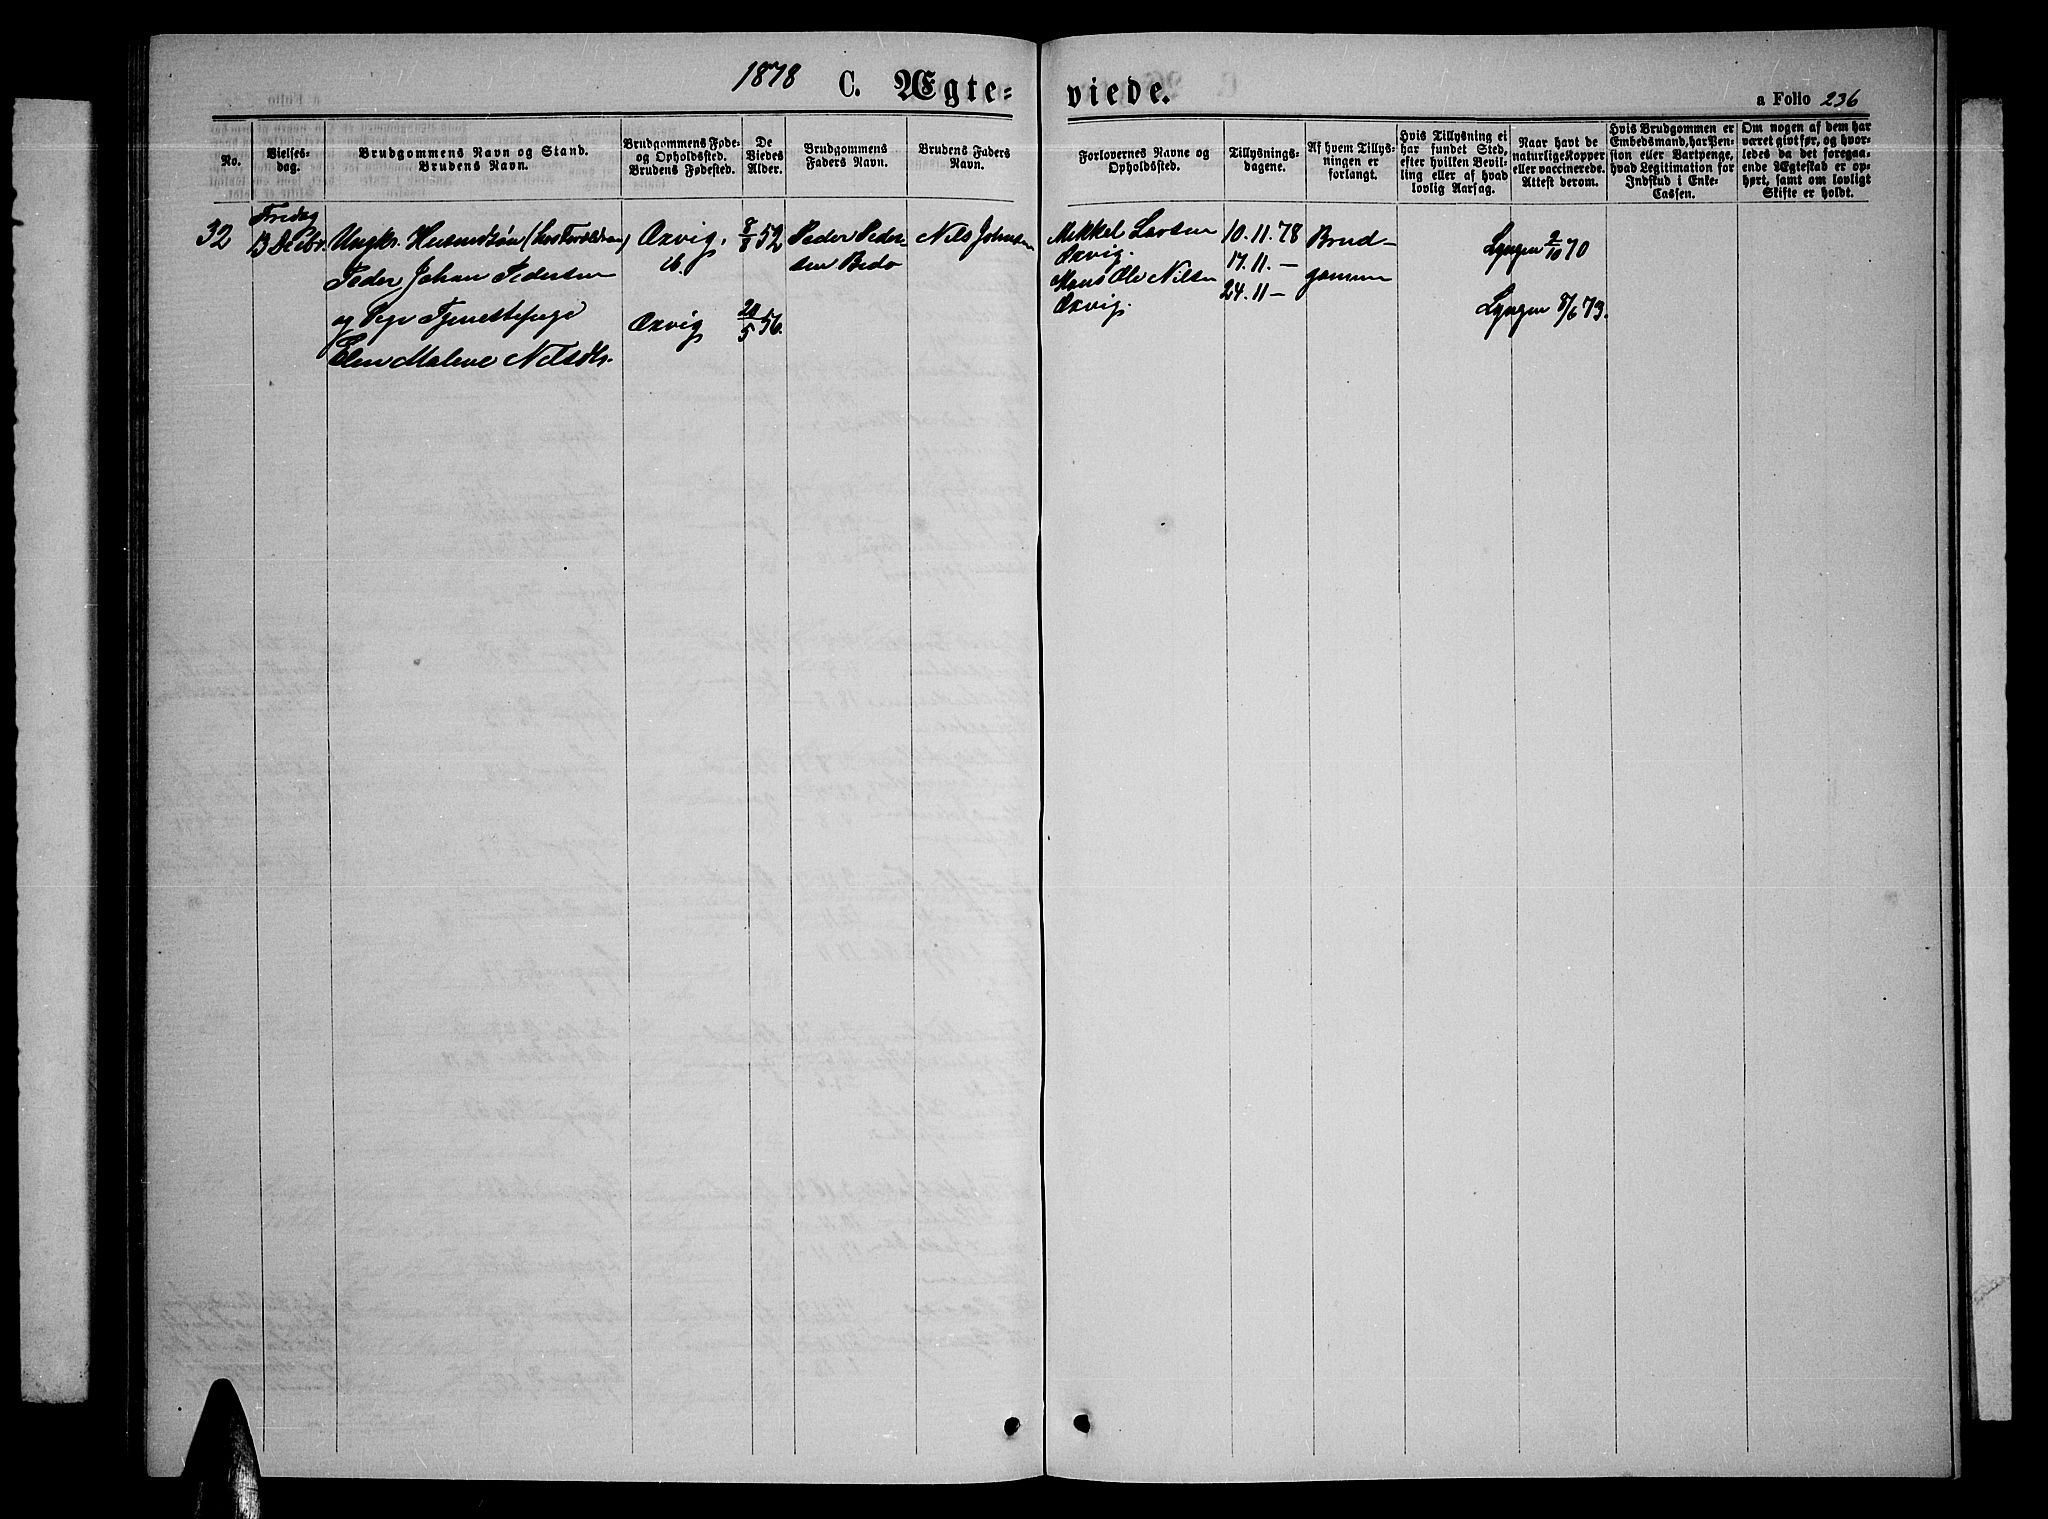 1878 C. Ægte- viede. a Folio 236
No.
Vielses-
dag.
Brudgommens Navn og Stand.
Brudens Navn.
Brudgommens Føde-
og Opholdssted.
Brudens Fødested.
De
Viedes
Alder.
Brudgommens
Faders Navn.
Brudens Faders
Navn.
Forlovernes Navne og
Opholdssted.
Tillysnings-
dagene.
Af hvem Tillys-
ningen er
forlangt.
Hvis Tillysning ei
har fundet Sted,
efter hvilken Bevil-
ling eller af hvad
lovlig Aarsag.
Naar havt de
naturlige Kopper
eller vaccinerede.
Attest derom.
Hvis Brudgommen er
Embedsmand, har Pen-
sion eller Vartpenge,
hvad Legitimation for
Indskud i Enke-
Cassen.
Om nogen af dem har
været givt før, og hvor-
ledes da det foregaa-
ende Ægtestad er op-
hørt, samt om lovligt
Skifte er holdt.
32
Fredag
13 Decbr.
Ungk. Husmdsøn
Peder Johan Pedersen
og Pige Tjenestepige
Elen Malene Nilsdtr.
Oxvig.
ib.
Oxvig
8/8 52
20/5 56.
Peder Peder-
sen Bedo
Nils Johnsen
Mikkel Larsen
Oxvig.
Hans Ole Nilsen
Oxvig.
10.11.78
17.11. —
24.11 —
Brud-
gommen
Lyngen 2/10 70
Lyngen 8/6 73.